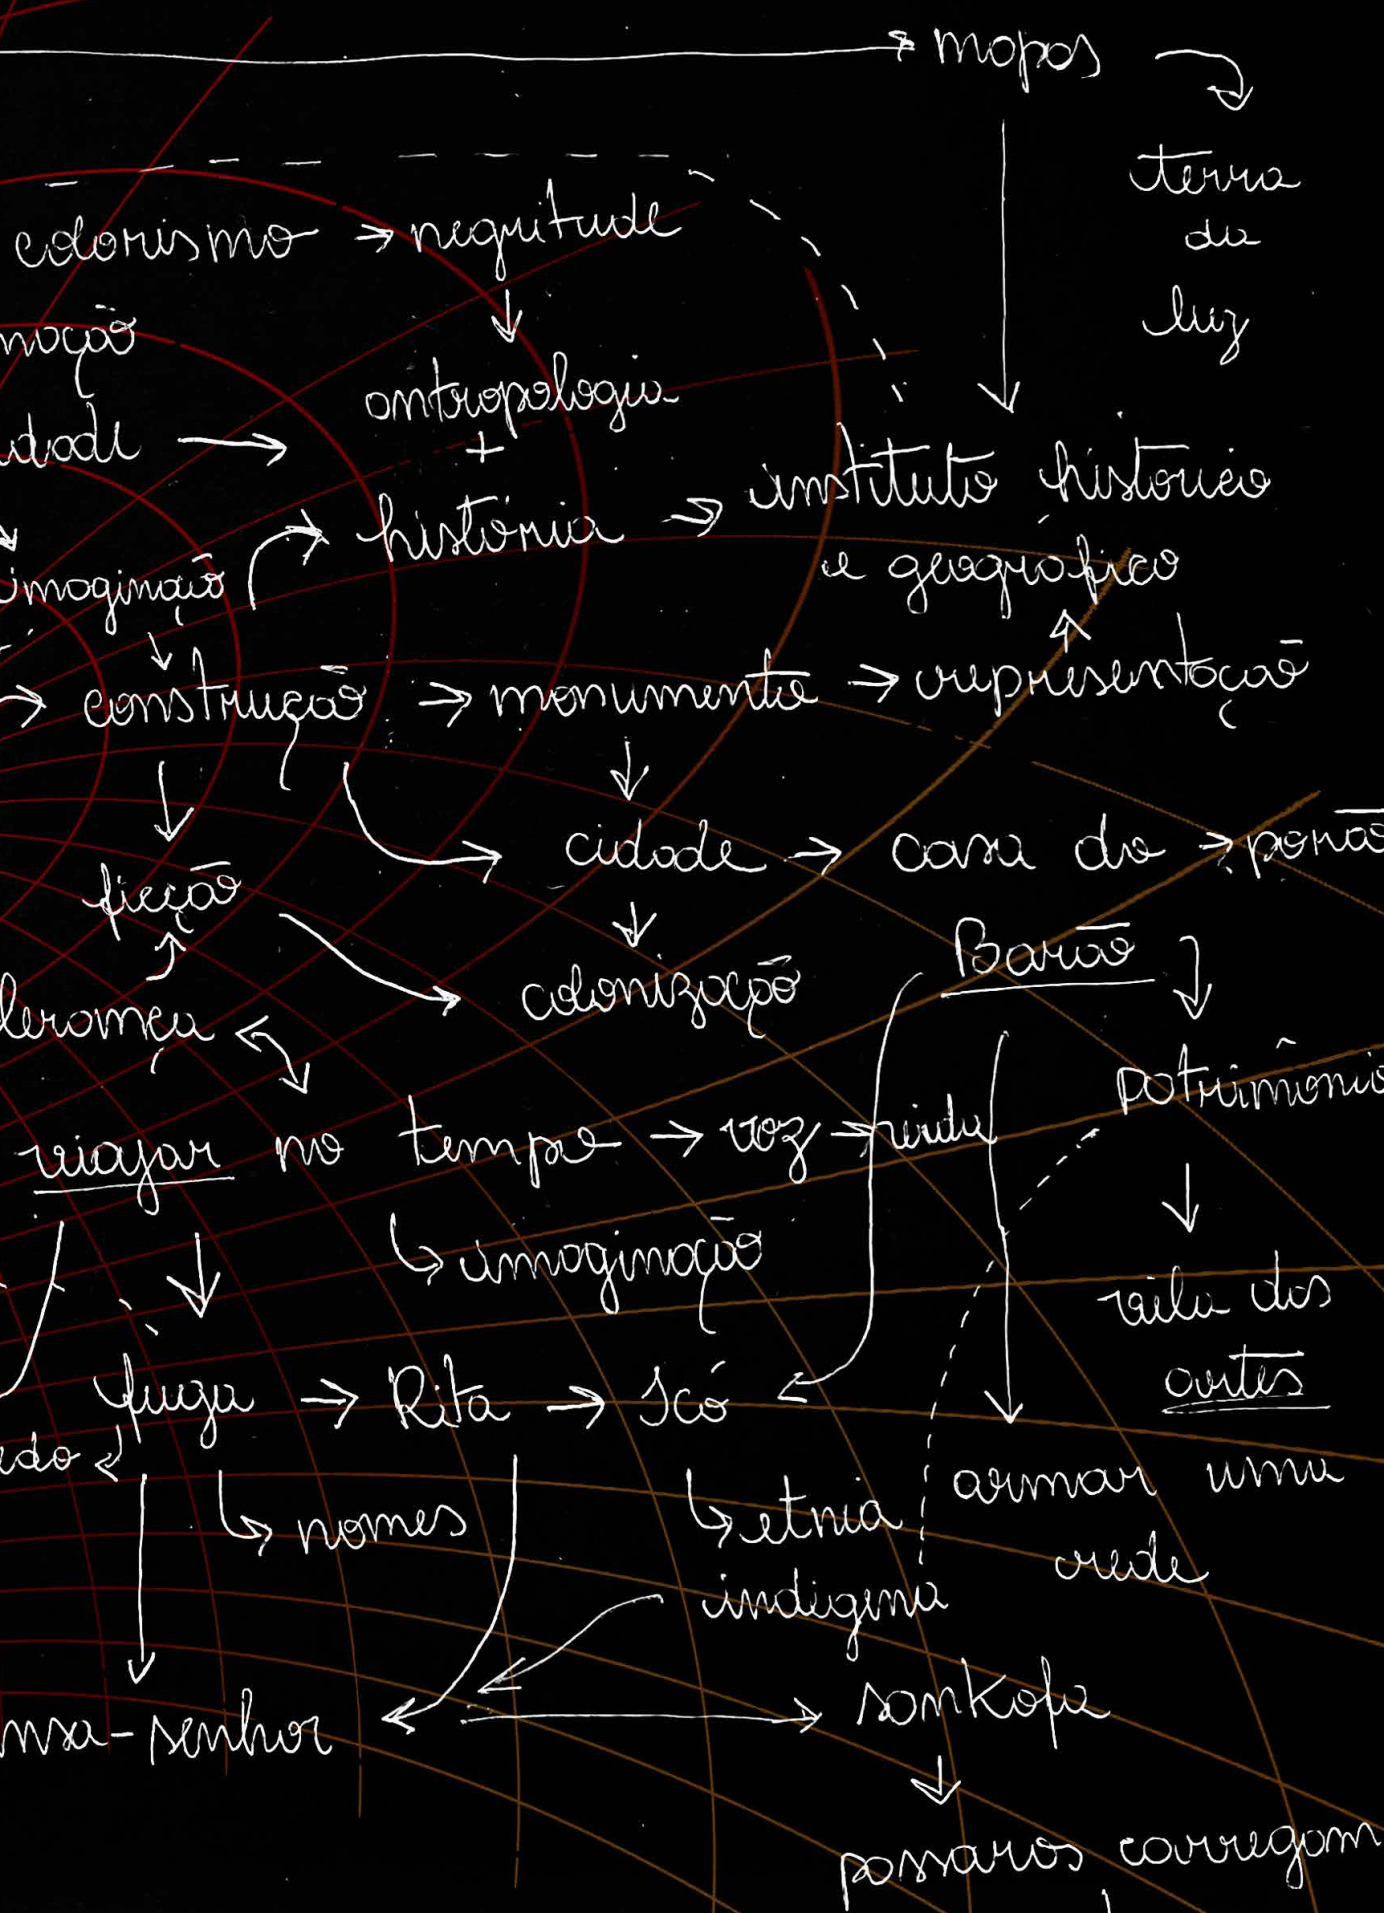 → mapas
terra
da
luz
colorismo → negritude
noção
antropologia
+
idade →
história → instituto histórico
e geográfico
imaginação
→ construção → monumento → representação
cidade → casa do → porão
ficção
Barão
colonização
herança
patrimônio
viajar no tempo → voz → vinda
imaginação
vila das
artes
fuga → Rita → Icó
edo
nomes
etnia
indígena
armar uma
rede
nsa-senhor
→ sankofa
pássaros carregam